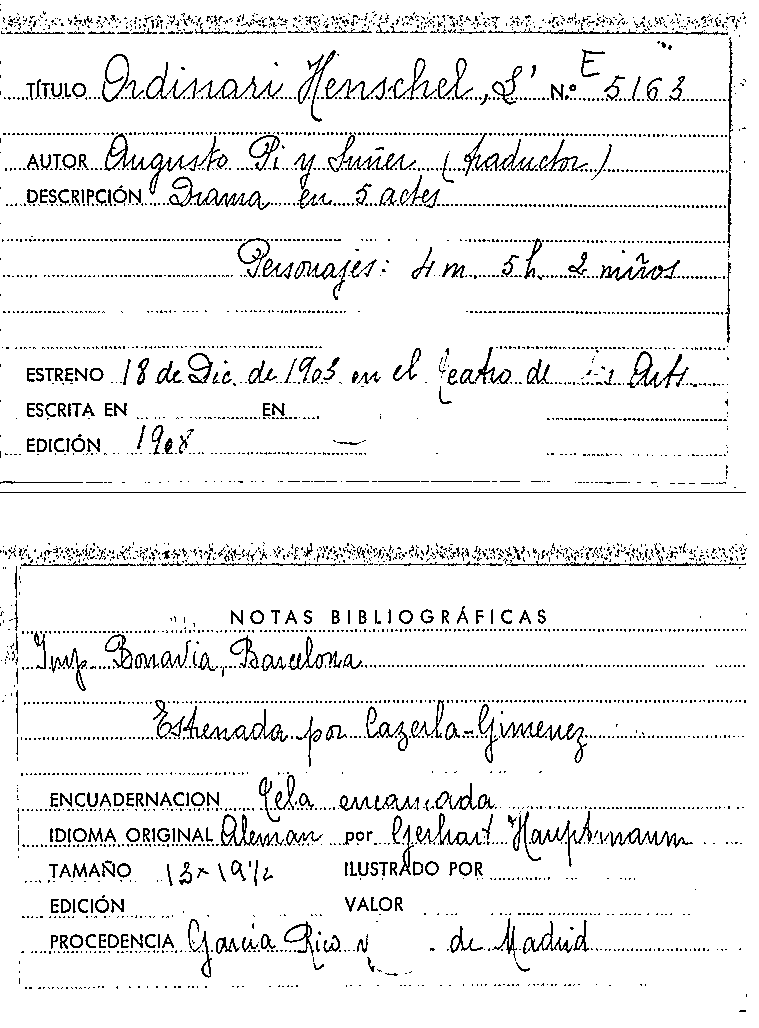 TÍTULO Ordinari Henschel, L' N.º E 5163
AUTOR Augusto Pi y Suñer (traductor)
DESCRIPCIÓN Drama en 5 actes
Personajes: 4 m. 5 h. 2 niños
ESTRENO 18 de Dic. de 1903 en el Teatro de les Arts.
ESCRITA EN EN
EDICIÓN 1908 —
NOTAS BIBLIOGRÁFICAS
Imp. Bonavia, Barcelona
Estrenada por Cazerla-Gimenez
ENCUADERNACION Tela encarnada
IDIOMA ORIGINAL Aleman por Gerhart Hauptmaum
TAMAÑO 13 x 19 1/2 ILUSTRADO POR
EDICIÓN VALOR
PROCEDENCIA García Rico de Madrid